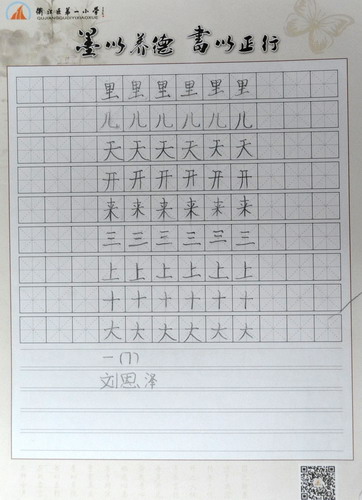 衢江区第一小学
墨以养德 書以正行
里里里里里里
儿儿儿儿儿儿
天天天天天天
开开开开开开
来来来来来来
三三三三三三
上上上上上上
十十十十十十
大大大大大大
一(7)
刘思泽